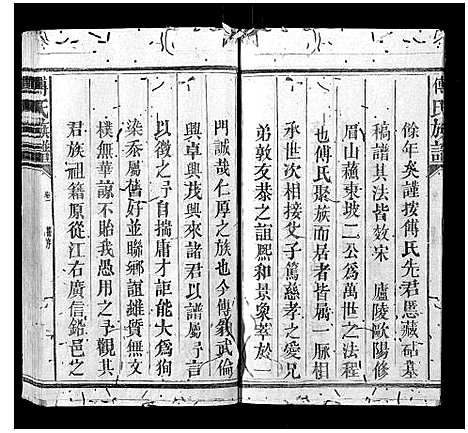 傅氏族譜
餘年矣謹按傅氏先君慝藏砧集
稿譜其法皆效宋 廬陵歐陽修
眉山蘓東坡二公為萬世之法程
也傅氏聚族而居者皆一脈相
承世次相接父子篤慈孝之愛兄
弟敦友恭之誼熙和景象萃於一
門誠哉仁厚之族也今傅毅武倫
興卓興茂興來諸君以譜屬予言
以徵之予自揣庸才詎能大為狥
染忝屬僭好並聯鄉誼雖質無文
樸無華諒不貽我愚用之予觀其
君族祖籍原從江右廣信鉛邑之
傅氏族譜